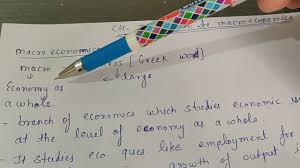 (H- to macroeconomics
macro economic
macro ros [Greek word]
Economy as large
a whole.
- branch of economics which studies economic
at the level of economy as a whole.
- It studies eco ques. like employment for
growth of output